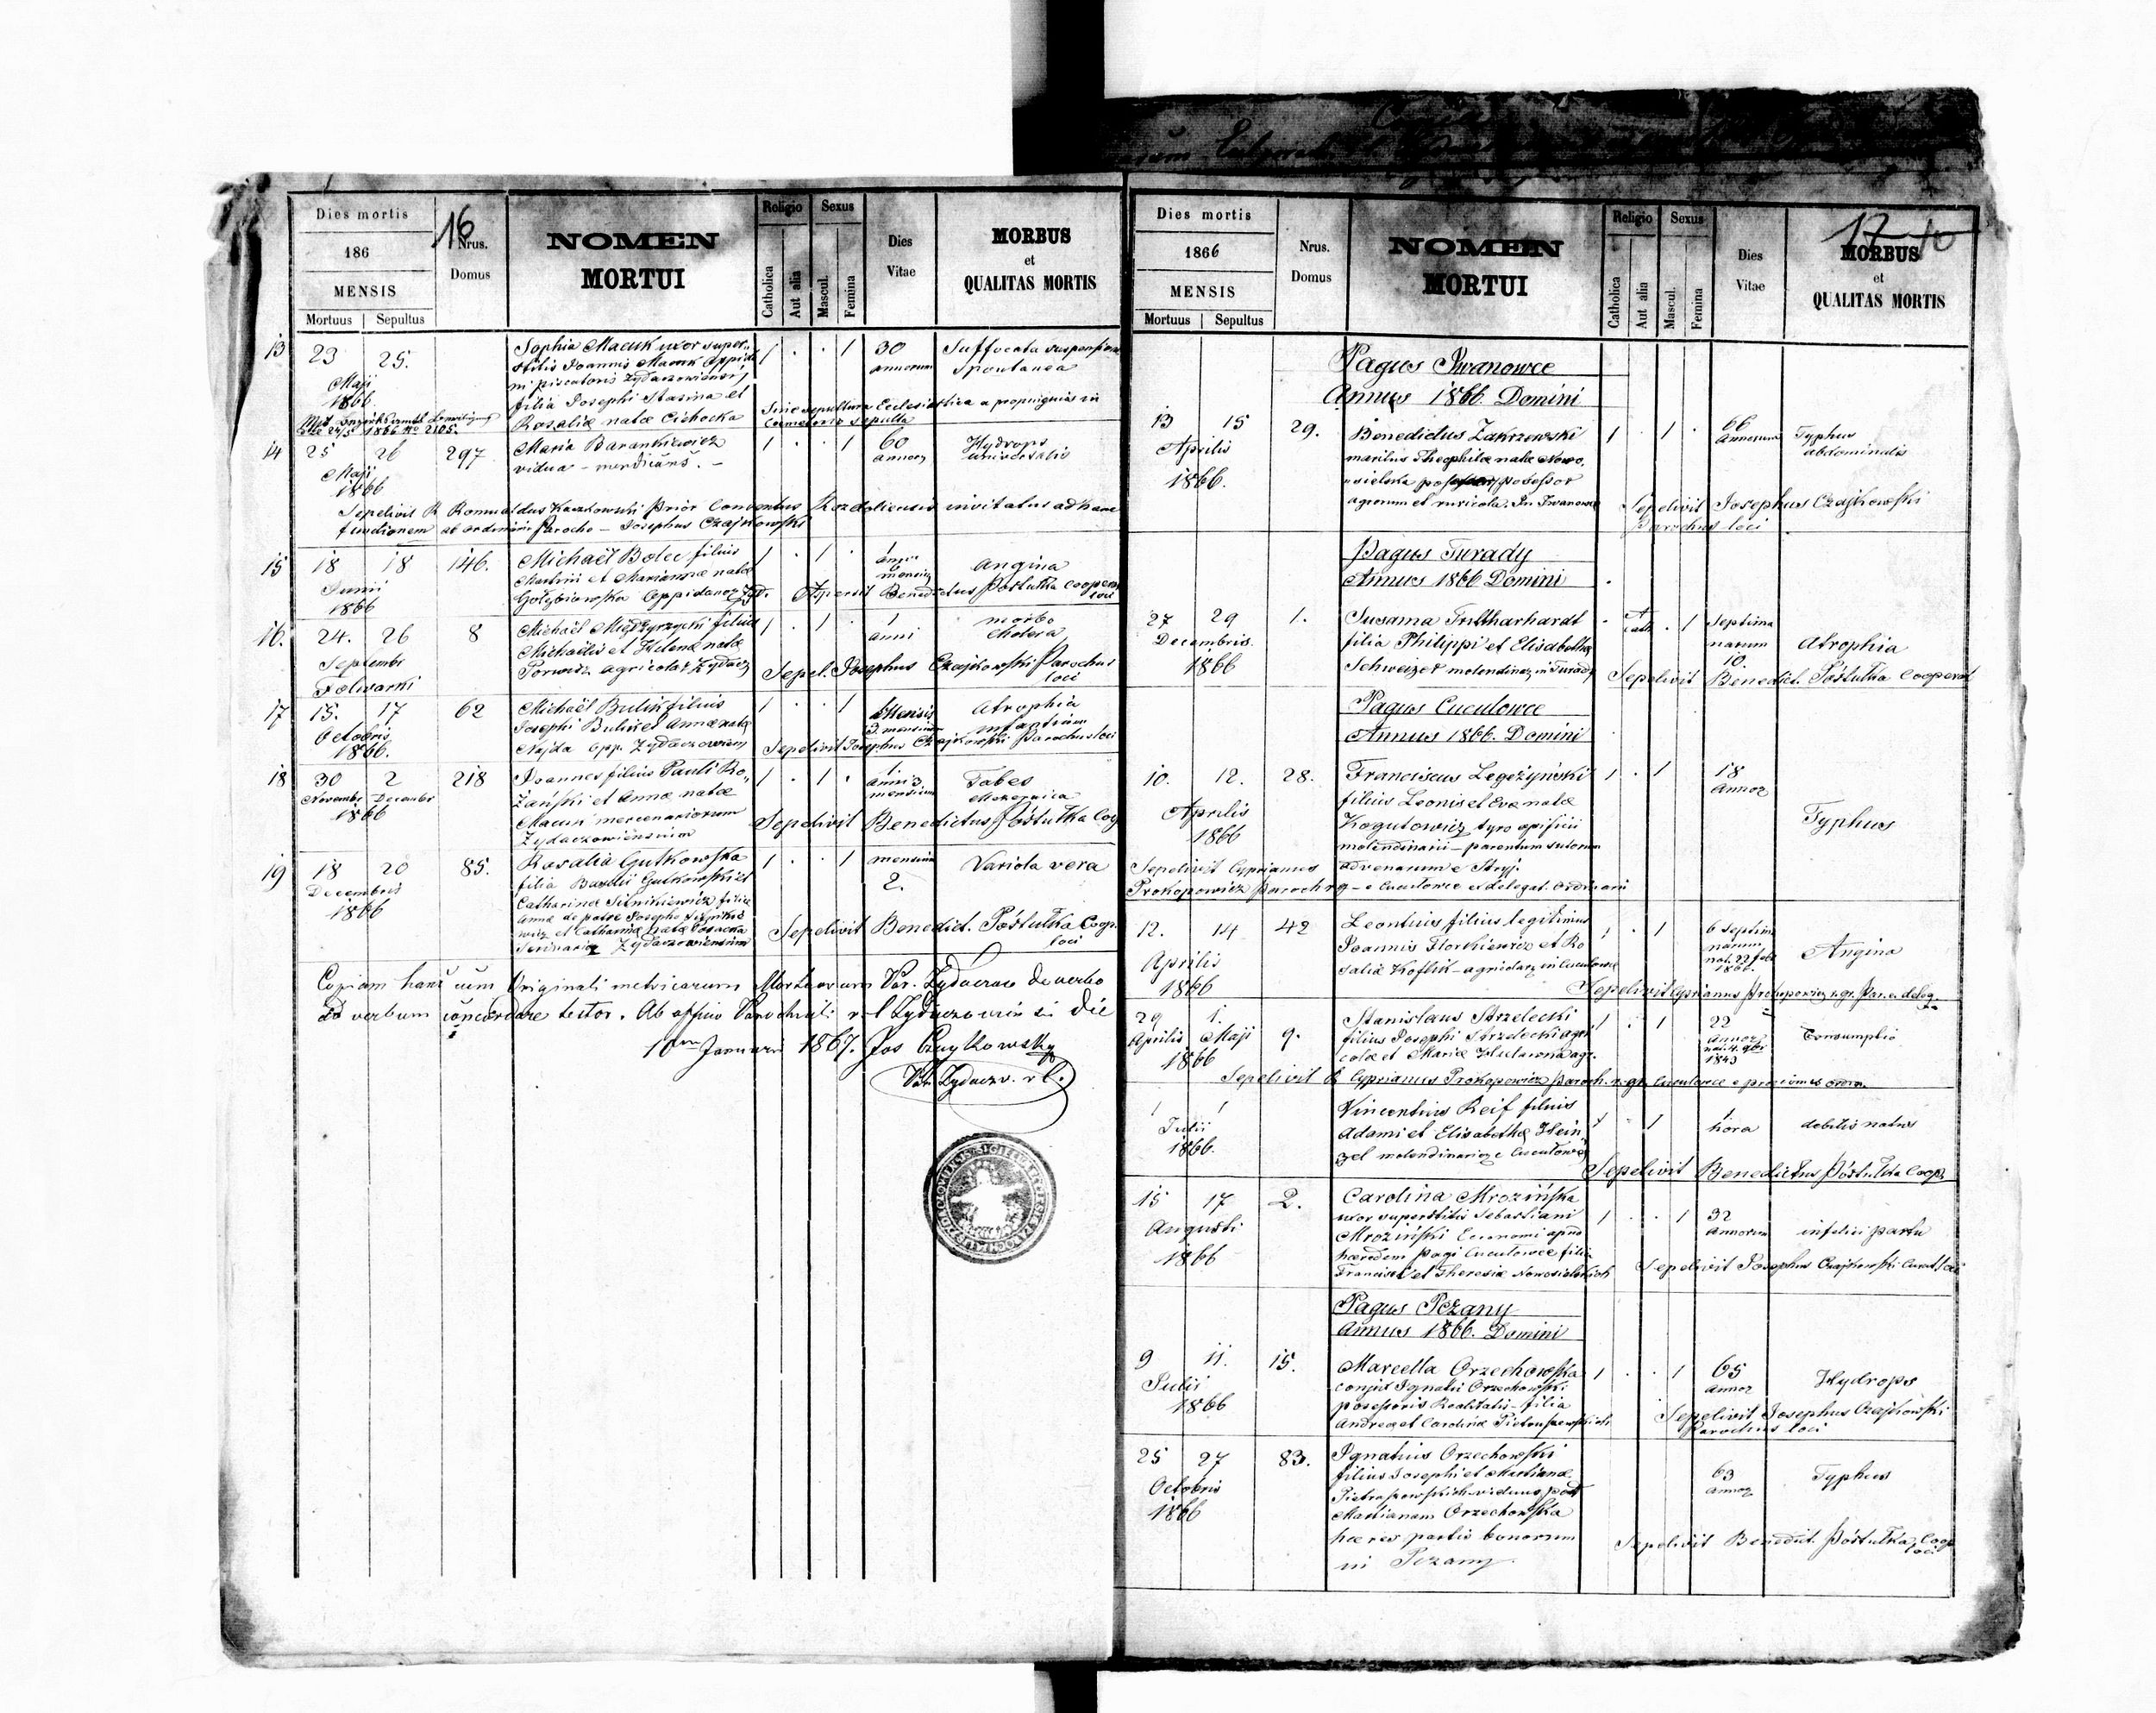 16
Dies mortis
186
MENSIS
Mortuus Sepultus
Nrus.
Domus
NOMEN
MORTUI
Religio
Catholica
Aut alia
Sexus
Mascul.
Femina
Dies
Vitae
MORBUS
et
QUALITAS MORTIS
13 23 25.
Maji
1866.
Sophia Macuk uxor super-
stitis Joannis Macuk Oppida
ni piscatoris Zydaczowiensis
filia Josephi Stasina et
Rosaliæ natæ Cichocka
1 . . 1
30
annorum
Suffocata suspensione
Spontanea
Sine sepultura Ecclesiastica a propinquis in
Cæmeterio sepulta
1866 No 2105.
14 25 26 297
Maji
1866
Maria Barankiewicz
vidua - mendicans. -
1 . . 1
60
annor
Hydrops
universalis
Sepelivit R Romualdus Kaczkowski Prior Conventus Rozdoliensis invitatus ad hanc
functionem ab ordinario Parocho - Josephus Czajkowski
15 18 18 146.
Junii
1866
Michaël Bolec filius
Martini et Mariannæ natæ
Gołębiowska Oppidanor Zyd.
1 . 1 .
1
anni
6
mensium
Angina
Aspersit Benedictus Póstułka cooper
loci
16. 24. 26 8
Septembr
Folwarki
Michaël Międzyrzycki filius
Michaëlis et Helenæ natæ
agricolar Zydacz
1 . 1 .
1
anni
morbo
cholera
Sepel. Josephus Czajkowski Parochus
loci
17 15. 17 62
Octobris
1866.
Michaël Bulik filius
Josephi Bulik et Annæ natæ
Najda opp. Zydaczowien
Atrophia
infantium
Sepelivit Josephus Czajkowski Parochus loci
18 30 2 218
Novembr Decembr
1866
Joannes filius Pauli Ro-
żański et Annæ natæ
Macuk mercenariorum
Zydaczowiensium
1 . 1 .
1.
anni 3
mensium
Tabes
Sepelivit Benedictus Póstułka Coop
19 18 20 85.
Decembris
1866
Rosalia Gutkowska
filia Basilii Gutkowski et
Catharinæ Sitnikiewicz filiæ
Annæ de patre Josepho Sitnikie
wicz et Catharinæ natæ
Zydaczowiensium
1 . . 1
mensium
2.
Variola vera
Sepelivit Benedict. Póstułka Coop.
loci
Copiam hanc cum Originali metricarum Mortuorum Par. Zydaczow de verbo
ad verbum concordare testor. Ab officio Parochiali r. l Zydaczoviensi die
Januarii 1867. Jos Czaykowsky
Par. Zydaczv. r l.
17 10
Dies mortis
1866
MENSIS
Mortuus Sepultus
Nrus.
Domus
NOMEN
MORTUI
Religio
Catholica
Aut alia
Sexus
Mascul.
Femina
Dies
Vitae
MORBUS
et
QUALITAS MORTIS
Pagus Iwanowce
Annus 1866 Domini
13 15 29.
Aprilis
1866.
Benedictus Zakrzewski
maritus Theophilæ natæ Nowo-
sielska possessor
agrorum et ruricola. In Iwanowce
1 . 1 .
66
Annorum
Typhus
abdominalis
Sepelivit Josephus Czajkowski
Parochus loci
Pagus Turady
Annus 1866 Domini
27 29 1.
Decembris
1866
Susanna
filia Philippi et Elisabethæ
Schweizer molendinar in Turady
. A cath . 1
septima
narum
10.
Atrophia
Sepelivit Benedict. Póstułka Cooperat
Pagus Cucułowce
Annus 1866. Domini
10. 12. 28.
Aprilis
1866
Franciscus Legeżyński
filius Leonis et Evæ natæ
Kogutowicz tyro opificii
molendinarii - parentum sutorum
advenarum e Stryj.
1 . 1
18
Annor
Typhus
Sepelivit Cyprianus
Prokopowicz Paroch r g - e Cucułowce ex delegat. ordinarii
12. 14 42
Aprilis
1866
Leontius filius legitimus
Joannis Florkiewicz et Ro
saliæ Koflik - agricolarz in Cucułowce
1 . 1
6 septim
narum
nat. 22 feb
1866.
Angina
Sepelivit Cyprianus Prokopowicz r. gr. Par. e. deleg.
29 1. 9.
Aprilis Maji
1866
Stanislaus Strzelecki
filius Josephi Strzelecki agri
colæ et Mariæ agr.
1 . 1
22
Annor
1843
Consumptio
Sepelivit R Cyprianus Prokopowicz Paroch. r. gr. Cucułowce
1 1
Julii
1866.
Vincentius Reif filius
Adami et Elisabethæ Hein
zel molendinarior e Cucułowce
1 . 1
1
hora
debilis natus
Sepelivit Benedictus Póstułka Coop.
15 17 2.
Augusti
1866
Carolina Mrozińska
uxor superstitis Sebastiani
Mroziński Economi apud
hæredem pagi Cucułowce filia
Francisci et Theresiæ Nowosielskich
1 . . 1
32
Annorum
infelici partu
Sepelivit Josephus Czajkowski Curat loci
Pagus Pczany
Annus 1866. Domini
9 11. 15.
Julii
1866
Marcella Orzechowska
conjux Ignatii Orzechowski
possessoris Realitatis - filia
Andreæ et Carolinæ
1 . . 1
65
Annor
Hydrops
Sepelivit Josephus Czajkowski
Parochus loci
25 27 83.
Octobris
1866
Ignatius Orzechowski
filius Josephi et Mariannæ
viduus post
Mariannam Orzechowska
hæres partis bonorum
in Pczany.
63
Annor
Typhus
Sepelivit Benedict. Póstułka Coop
loci